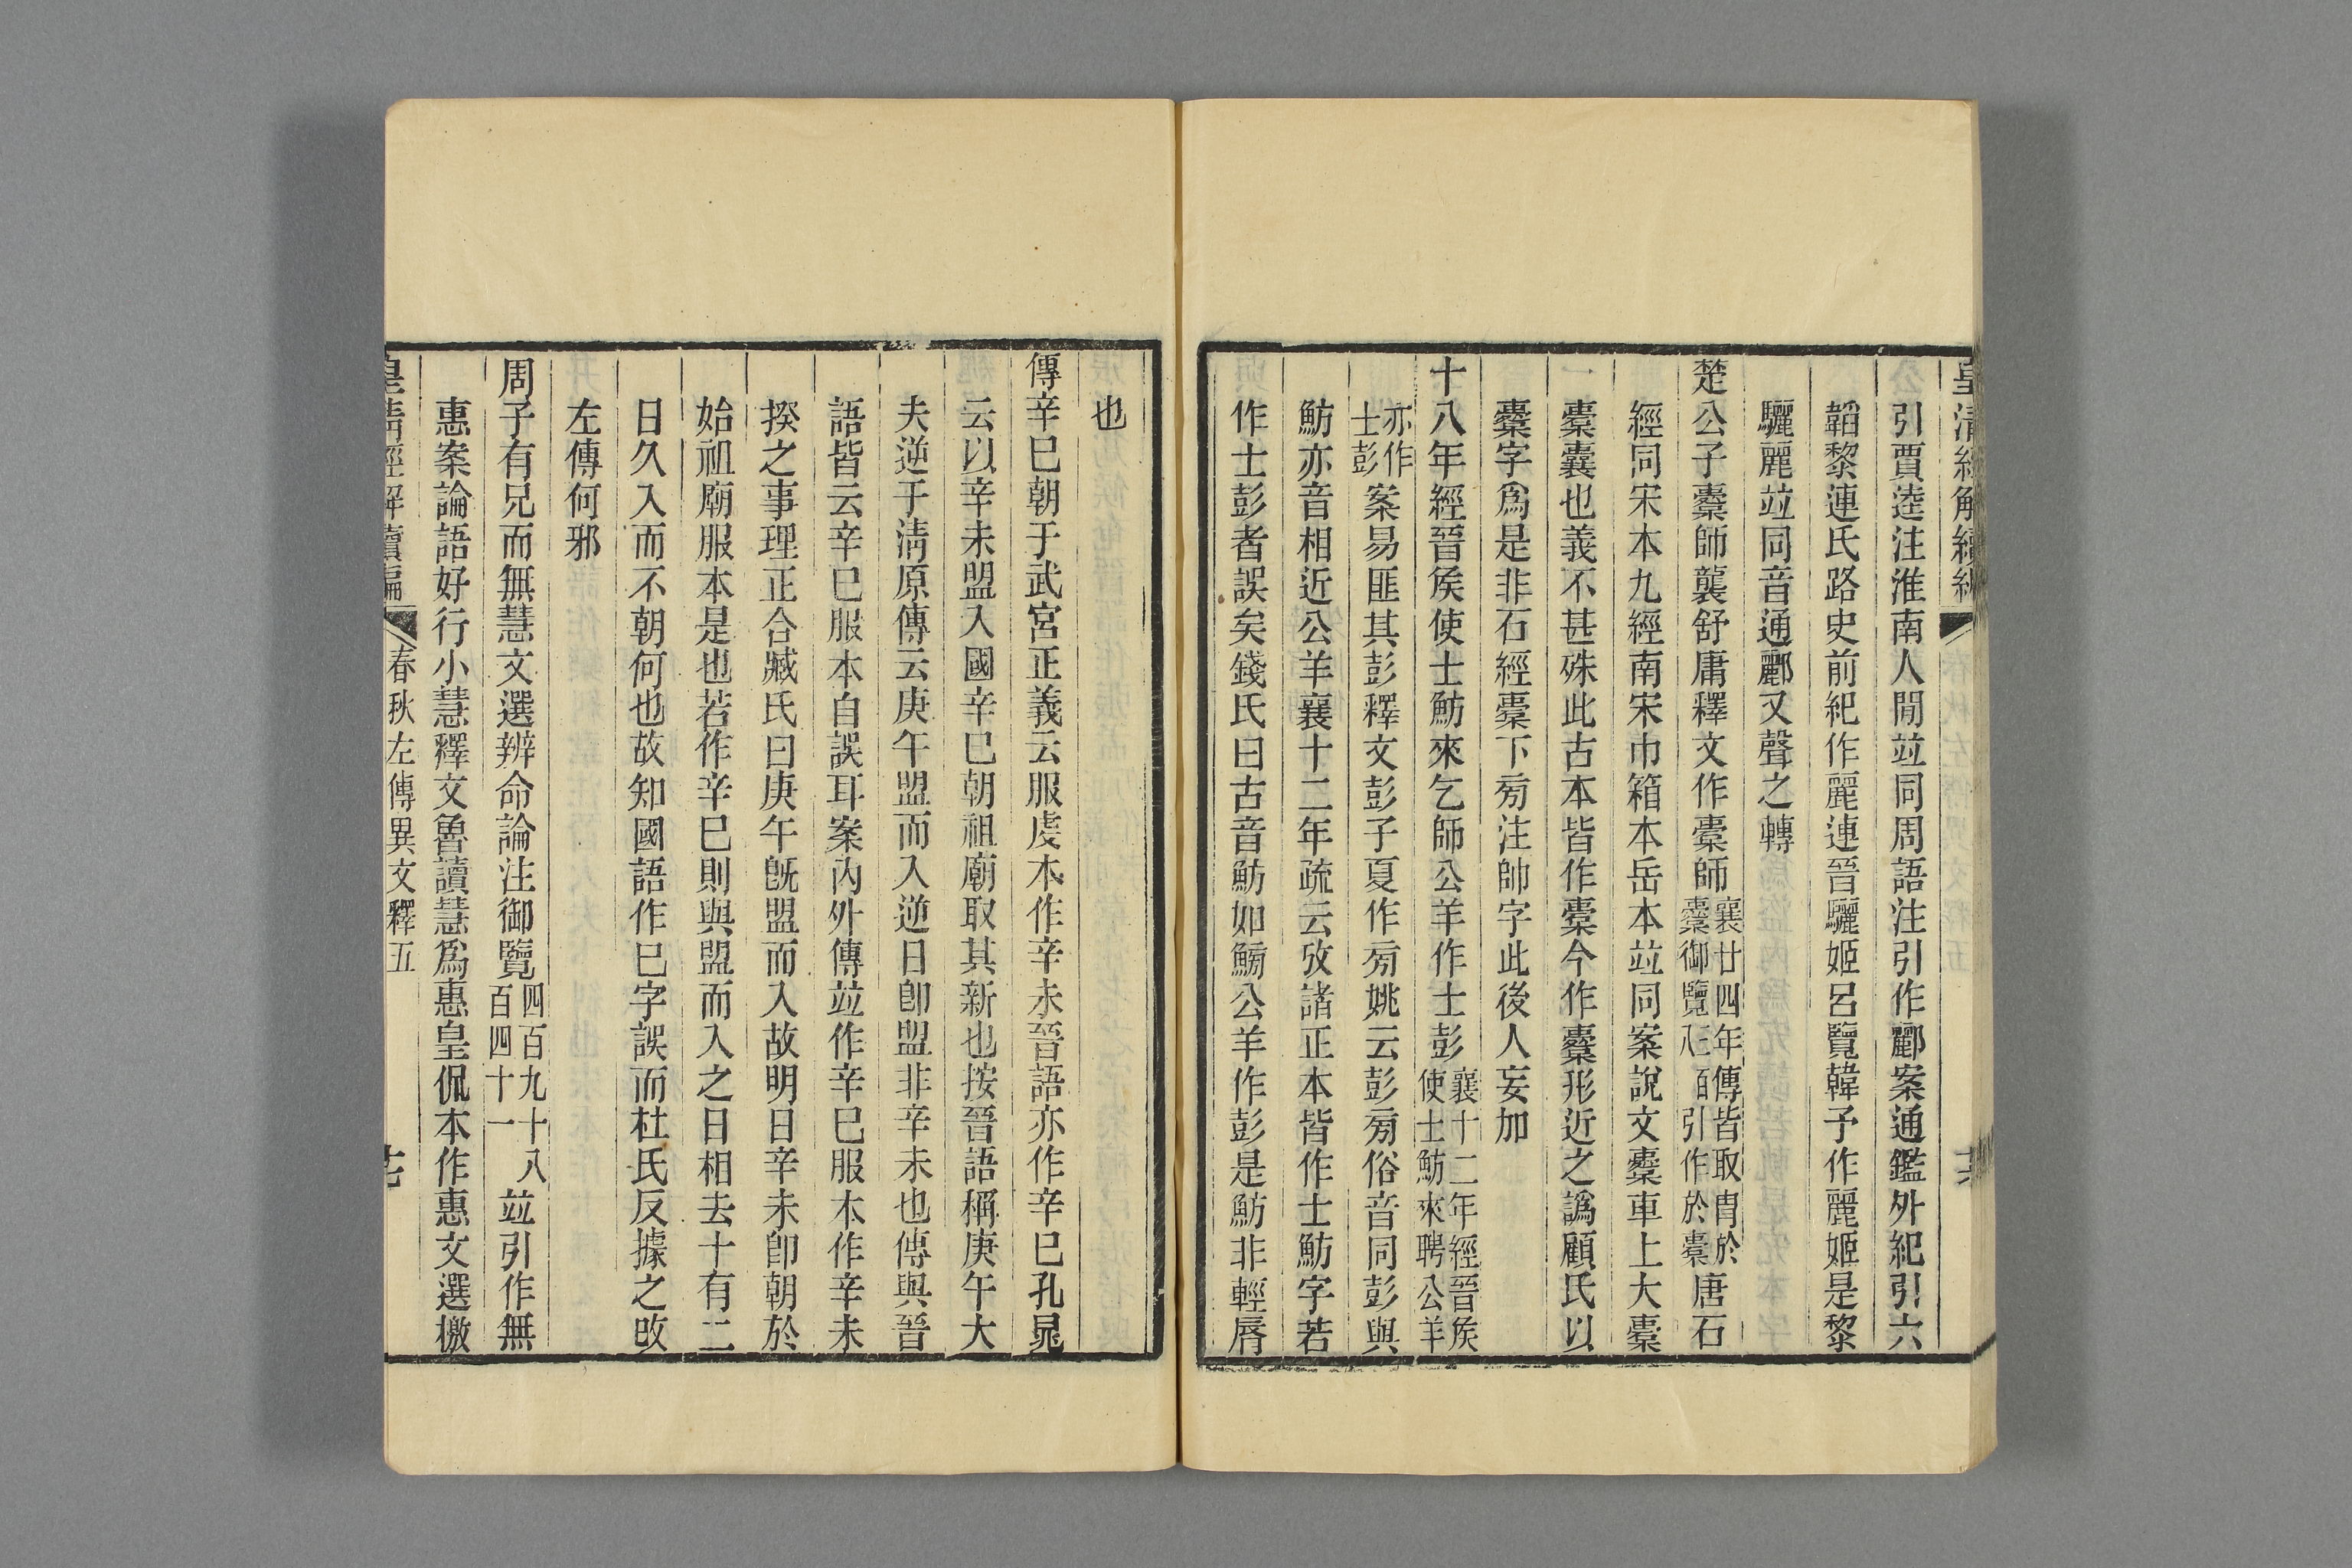 皇清經解續編
引賈逵注淮南人閒竝同周語注引作酈案通鑑外紀引六
韜黎連氏路史前紀作麗連晉驪姬呂覽韓子作麗姬是黎
驪麗竝同音通酈又聲之轉
楚公子橐師襲舒庸釋文作橐師
襄廿四年傳皆取胄於
橐御覽 引作於橐
唐石
經同宋本九經南宋巾箱本岳本竝同案說文櫜車上大橐
橐囊也義不甚殊此古本皆作橐今作櫜形近之譌顧氏以
櫜字爲是非石經橐下旁注帥字此後人妄加
十八年經晉侯使士魴來乞師公羊作士彭
襄十二年經晉侯
使士魴來聘公羊
亦作
士彭
案易匪其彭釋文彭子夏作旁姚云彭旁俗音同彭與
魴亦音相近公羊襄十二年疏云攷諸正本皆作士魴字若
作士彭者誤矣錢氏曰古音魴如鰟公羊作彭是魴非輕脣
也
傳辛巳朝于武宮正義云服虔本作辛未晉語亦作辛巳孔晁
云以辛未盟入國辛巳朝祖廟取其新也按晉語稱庚午大
夫逆于清原傳云庚午盟而入逆日卽盟非辛未也傳與晉
語皆云辛巳服本自誤耳案內外傳竝作辛巳服本作辛未
揆之事理正合臧氏曰庚午旣盟而入故明日辛未卽朝於
始祖廟服本是也若作辛巳則與盟而入之日相去十有二
日久入而不朝何也故知國語作巳字誤而杜氏反據之改
左傳何邪
周子有兄而無慧文選辨命論注御覽
四百九十八
百四十一
竝引作無
惠案論語好行小慧釋文魯讀慧爲惠皇侃本作惠文選檄
皇清經解續編
春秋左傳異文釋五